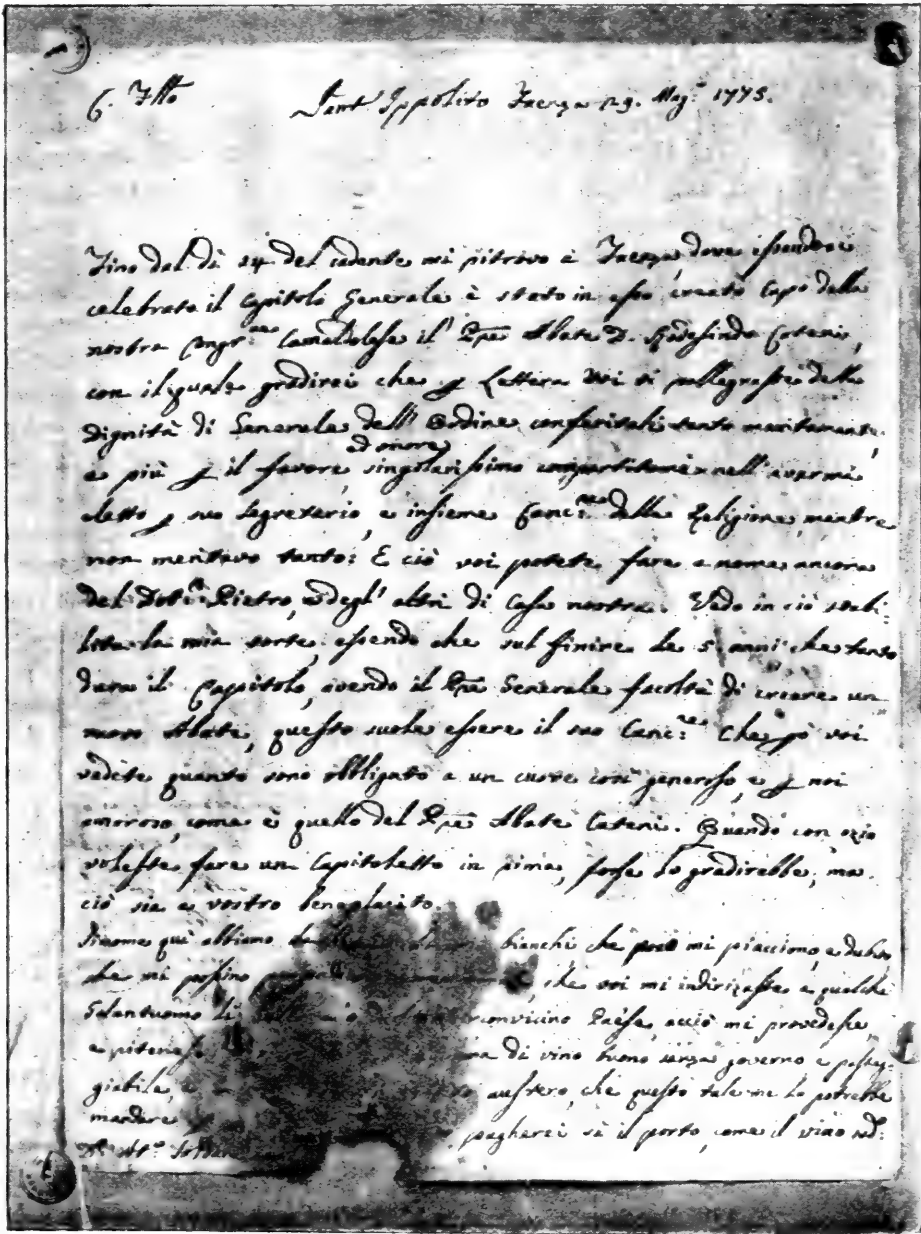 Sant' Ippolito Faenza 29. Mag.º 1775.
Fino dal dì 14 del cadente mi ritrovo a Faenza, dove essendosi
celebrato il Capitolo Generale è stato in esso creato Capo della
nostra Camaldolese il Abate D.
con il quale gradirei che Lettera voi vi rallegraste della
dignità di Generale dell' Ordine conferitali tanto meritamente,
e più il favore, ed onore singolarissimo compartitomi nell' avermi
eletto suo Segretario, e insieme Canc.re della Religione, mentre
non meritavo tanto: E ciò voi potete fare a nome ancora
del Dott.re Pietro, e degl' altri di Casa nostra. Vedo in ciò stabi-
lita la mia sorte, essendo che sul finire de 5 anni che tanto
dura il Capitolo, avendo il Generale facoltà di creare un
nuovo Abate, questo suole essere il suo Canc.re Che voi
vedete quanto sono obbligato a un cuore così generoso, e noi
amoroso, come è quello del Abate Cateni. Quando con ozio
voleste fare un Capitoletto in rima, forse lo gradirebbe, ma
ciò sia a vostro beneplacito.
Siccome quì abbiamo bianchi che poco mi piacciono, e dubito
che mi possino che voi mi indirizzaste a qualche
Galantuomo di convicino Paese, acciò mi provedesse,
e di vino buono senza governo e
giabile, austero, che questo tale me lo potrebbe
mandare pagherei sì il porto, come il vino